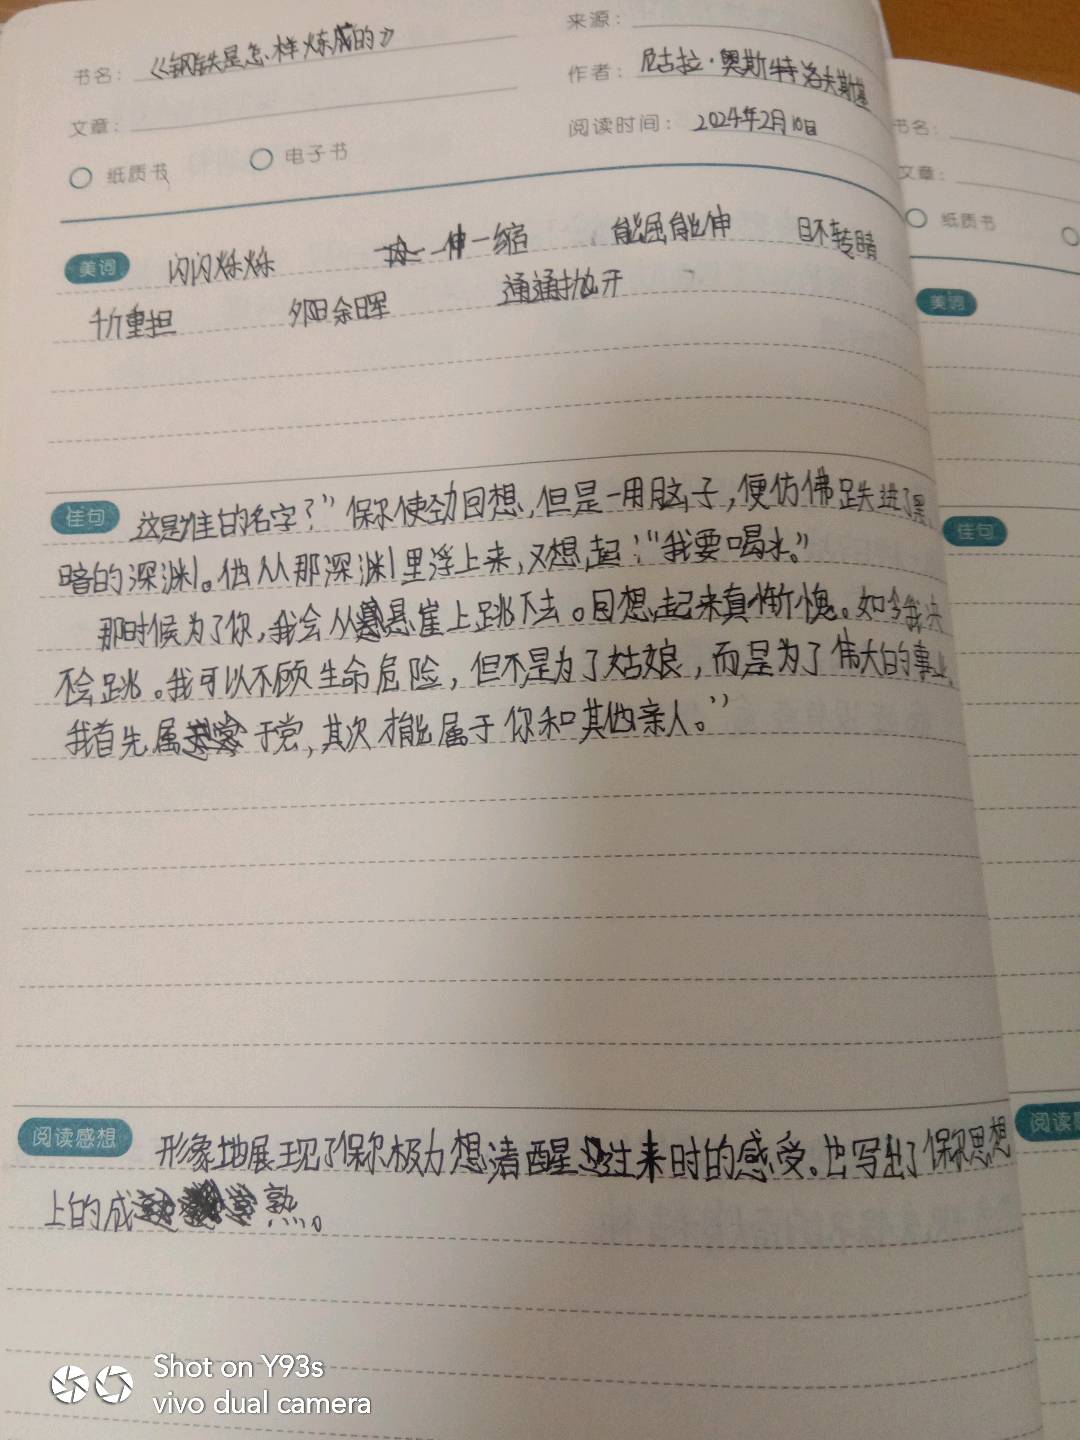 书名：《钢铁是怎样炼成的》
来源：
作者：尼古拉·奥斯特洛夫斯基
文章：
阅读时间：2024年2月10日
纸质书 电子书
美词 闪闪烁烁 一伸一缩 能屈能伸 目不转睛
千斤重担 夕阳余晖 通通抛开
佳句 这是谁的名字？”保尔使劲回想，但是一用脑子，便仿佛跌进了黑
暗的深渊。他从那深渊里浮上来，又想起：“我要喝水。”
那时候为了你，我会从悬崖上跳下去。回想起来真惭愧。如今我决
不会跳。我可以不顾生命危险，但不是为了姑娘，而是为了伟大的事业。
我首先属于党，其次才能属于你和其他亲人。”
阅读感想 形象地展现了保尔极力想清醒过来时的感受。也写出了保尔思想
上的成熟。
书名：
文章：
纸质书
美词
佳句
阅读
Shot on Y93s
vivo dual camera